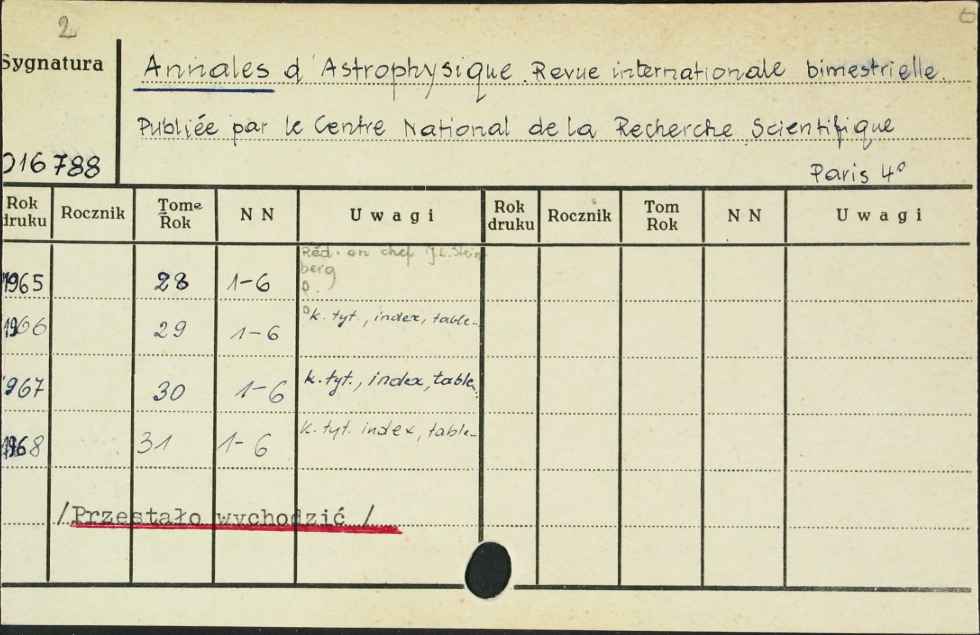 2
Sygnatura
Annales d'Astrophysique. Revue internationale bimestrielle.
Publiée par le Centre National de la Recherche Scientifique
016788
Paris 4°
Rok druku Rocznik Tome Rok NN Uwagi Rok druku Rocznik Tom Rok NN Uwagi
Réd. en chef J.L. Stein
berg
1965 28 1-6
1966 29 1-6 k. tyt., index, table
1967 30 1-6 k. tyt., index, table
1968 31 1-6 k. tyt. index, table
/Przestało wychodzić /